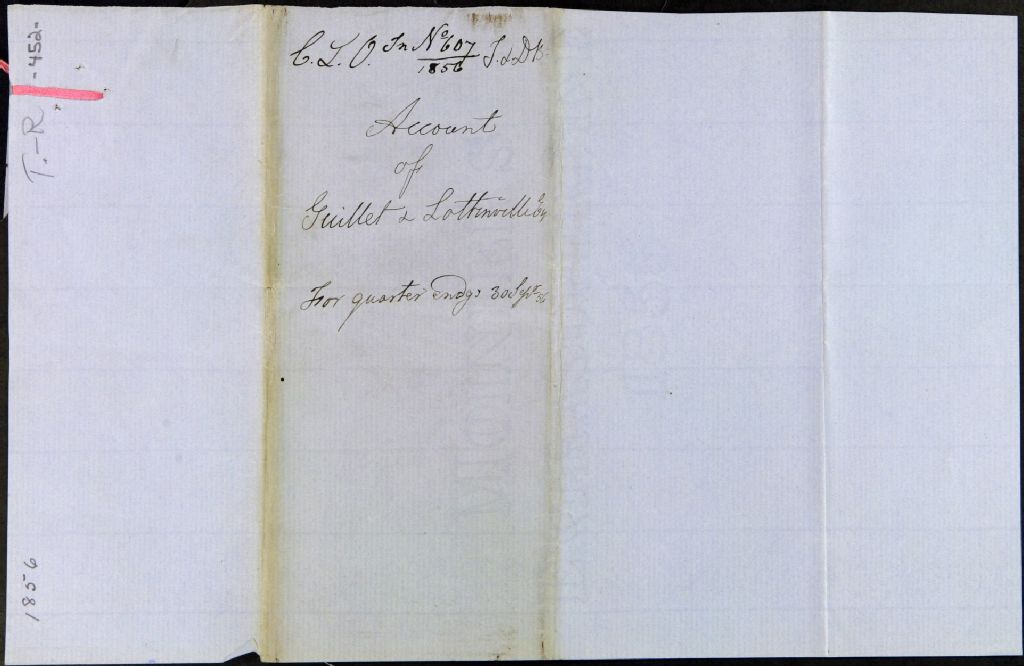 T.-R -452-
C. L. O. In No 607 T. & D B.
1856
Account
of
Guillet & Lottinville Esq
For quarter endg. 30 Sepr 56
1856